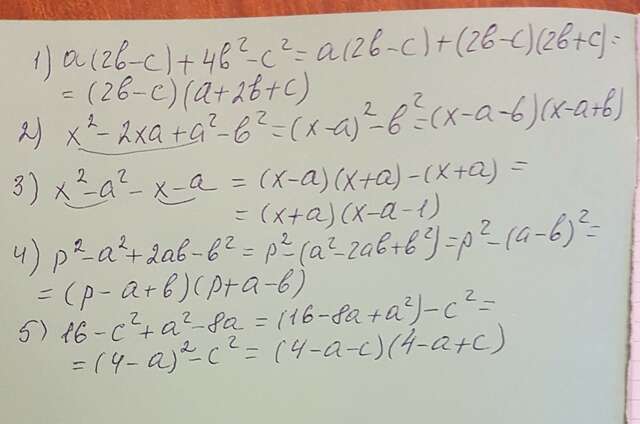 1) a(2b-c)+4b²-c²=a(2b-c)+(2b-c)(2b+c)=
=(2b-c)(a+2b+c)
2) x²-2xa+a²-b²=(x-a)²-b²=(x-a-b)(x-a+b)
3) x²-a²-x-a=(x-a)(x+a)-(x+a)=
=(x+a)(x-a-1)
4) p²-a²+2ab-b²=p²-(a²-2ab+b²)=p²-(a-b)²=
=(p-a+b)(p+a-b)
5) 16-c²+a²-8a=(16-8a+a²)-c²=
=(4-a)²-c²=(4-a-c)(4-a+c)